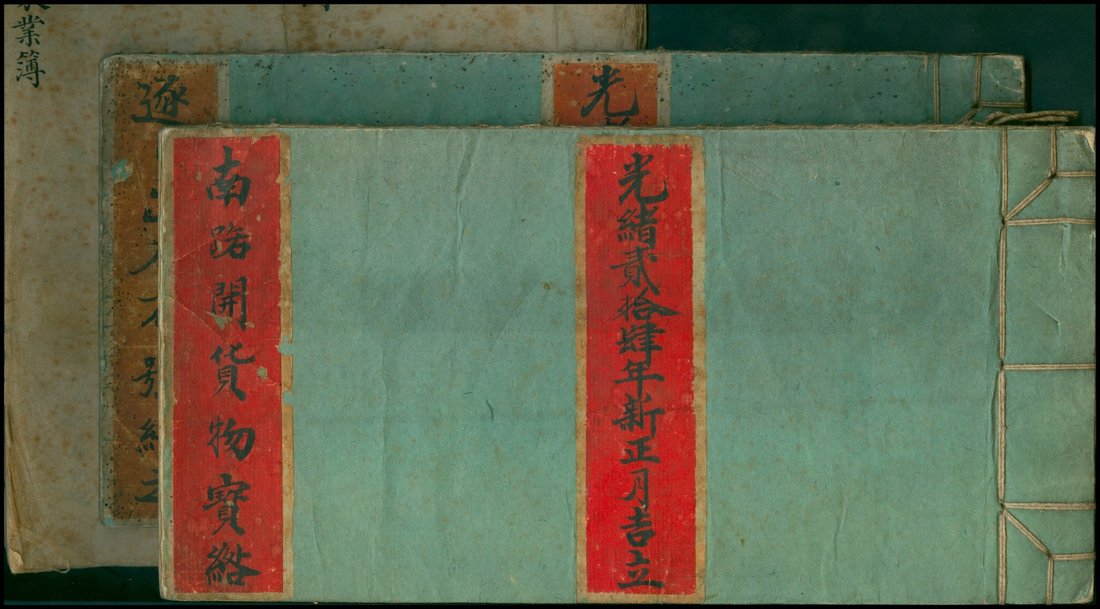 光緒貳拾肆年新正月吉立
南路開貨物寶
光
逐
號
業簿